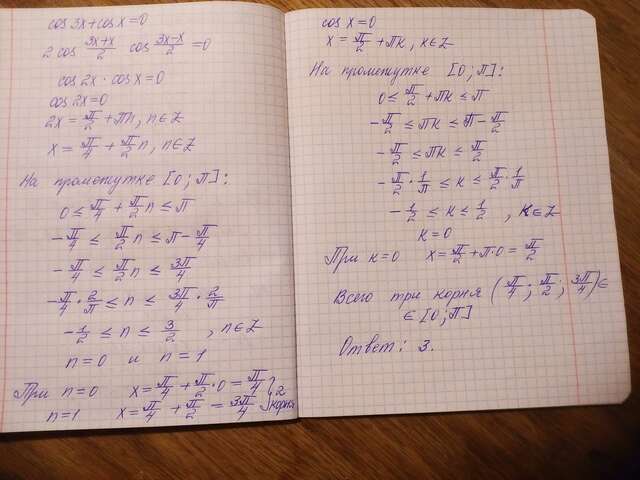 cos 3x + cos x = 0
2 cos (3x+x)/2 cos (3x-x)/2 = 0
cos 2x · cos x = 0
cos 2x = 0
2x = π/2 + πn, n ∈ Z
x = π/4 + π/2 n, n ∈ Z
На промежутке [0; π]:
0 ≤ π/4 + π/2 n ≤ π
-π/4 ≤ π/2 n ≤ π - π/4
-π/4 ≤ π/2 n ≤ 3π/4
-π/4 · 2/π ≤ n ≤ 3π/4 · 2/π
-1/2 ≤ n ≤ 3/2 , n ∈ Z
n = 0 и n = 1
При n = 0 x = π/4 + π/2 · 0 = π/4 } 2
n = 1 x = π/4 + π/2 = 3π/4 } корня
cos x = 0
x = π/2 + πк, к ∈ Z
На промежутке [0; π]:
0 ≤ π/2 + πк ≤ π
-π/2 ≤ πк ≤ π - π/2
-π/2 ≤ πк ≤ π/2
-π/2 · 1/π ≤ к ≤ π/2 · 1/π
-1/2 ≤ к ≤ 1/2 , к ∈ Z
к = 0
При к = 0 x = π/2 + π · 0 = π/2
Всего три корня (π/4; π/2; 3π/4) ∈
∈ [0; π]
Ответ: 3.